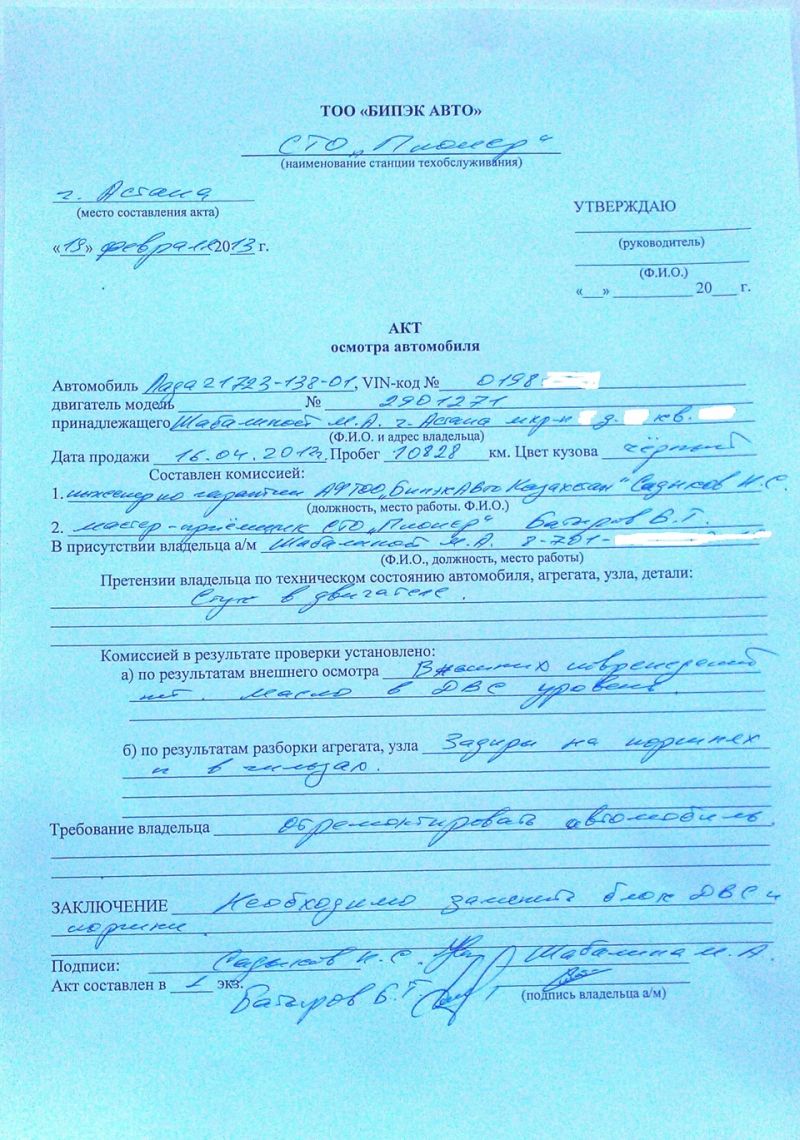 ТОО «БИПЭК АВТО»
СТО „Пионер“
(наименование станции техобслуживания)
г. Астана
(место составления акта)
УТВЕРЖДАЮ
(руководитель)
«19» февраля 2013 г.
(Ф.И.О.)
«__» __________ 20___ г.
АКТ
осмотра автомобиля
Автомобиль Лада 21723-138-01, VIN-код № 0198
двигатель модель __________ № 2901271
принадлежащего Шабалиной М.А. г. Астана мкр-н д. кв.
(Ф.И.О. и адрес владельца)
Дата продажи 16.04.2012г. Пробег 10828 км. Цвет кузова чёрный
Составлен комиссией:
1. инженер по гарантии АФ ТОО „БипэкАвто Казахстан“ Садыков Н.С.
(должность, место работы. Ф.И.О.)
2. мастер-приёмщик СТО „Пионер“ Батыров Б.Т.
В присутствии владельца а/м Шабалиной М.А. 8-701-
(Ф.И.О., должность, место работы)
Претензии владельца по техническом состоянию автомобиля, агрегата, узла, детали:
Стук в двигателе.
Комиссией в результате проверки установлено:
а) по результатам внешнего осмотра Внешних повреждений
нет. Масло в ДВС уровень.
б) по результатам разборки агрегата, узла Задиры на поршнях
и в гильзах.
Требование владельца Отремонтировать автомобиль.
ЗАКЛЮЧЕНИЕ Необходимо заменить блок ДВС и
поршни.
Подписи: Садыков Н.С. Шабалина М.А.
Акт составлен в 1 экз.
Батыров Б.Т
(подпись владельца а/м)